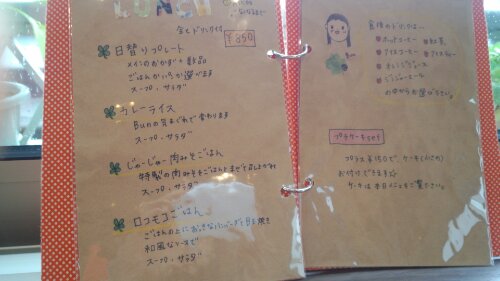 LUNCH
全てドリンク付
¥850
日替りプレート
メインのおかず+数品
ごはんかパンか選べます
スープ・サラダ
カレーライス
Bunの気まぐれで変わります
スープ・サラダ
じゅーじゅー肉みそごはん
特製の肉みそをごはんとまぜて召し上がれ
スープ・サラダ
ロコモコごはん
ごはんの上におっきなハンバーグと目玉焼き
和風なソースで
スープ・サラダ
食後のドリンクは…
ホットコーヒー 紅茶
アイスコーヒー アイスティー
オレンジジュース
ジンジャーエール
の中からお選び下さい。
プラスケーキset
プラス¥150で、ケーキ(小さめ)
お付けできます
ケーキは本日メニューをご覧ください。